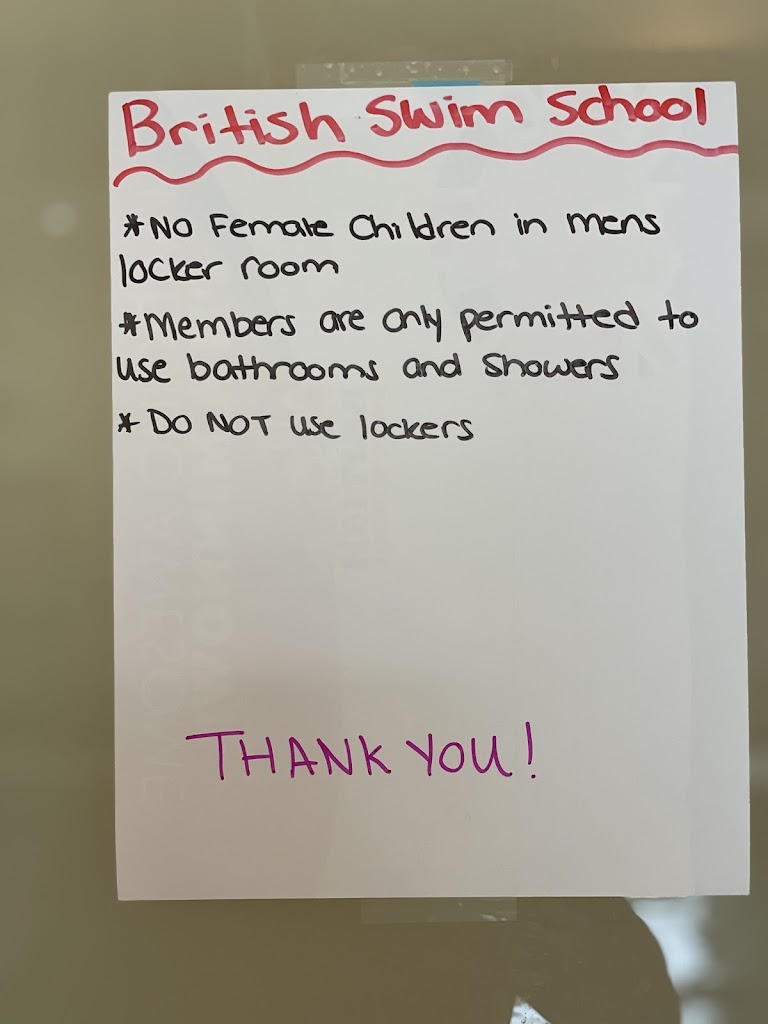 British Swim School
*NO Female Children in mens
locker room
*Members are only permitted to
use bathrooms and showers
* DO NOT use lockers
THANK YOU!